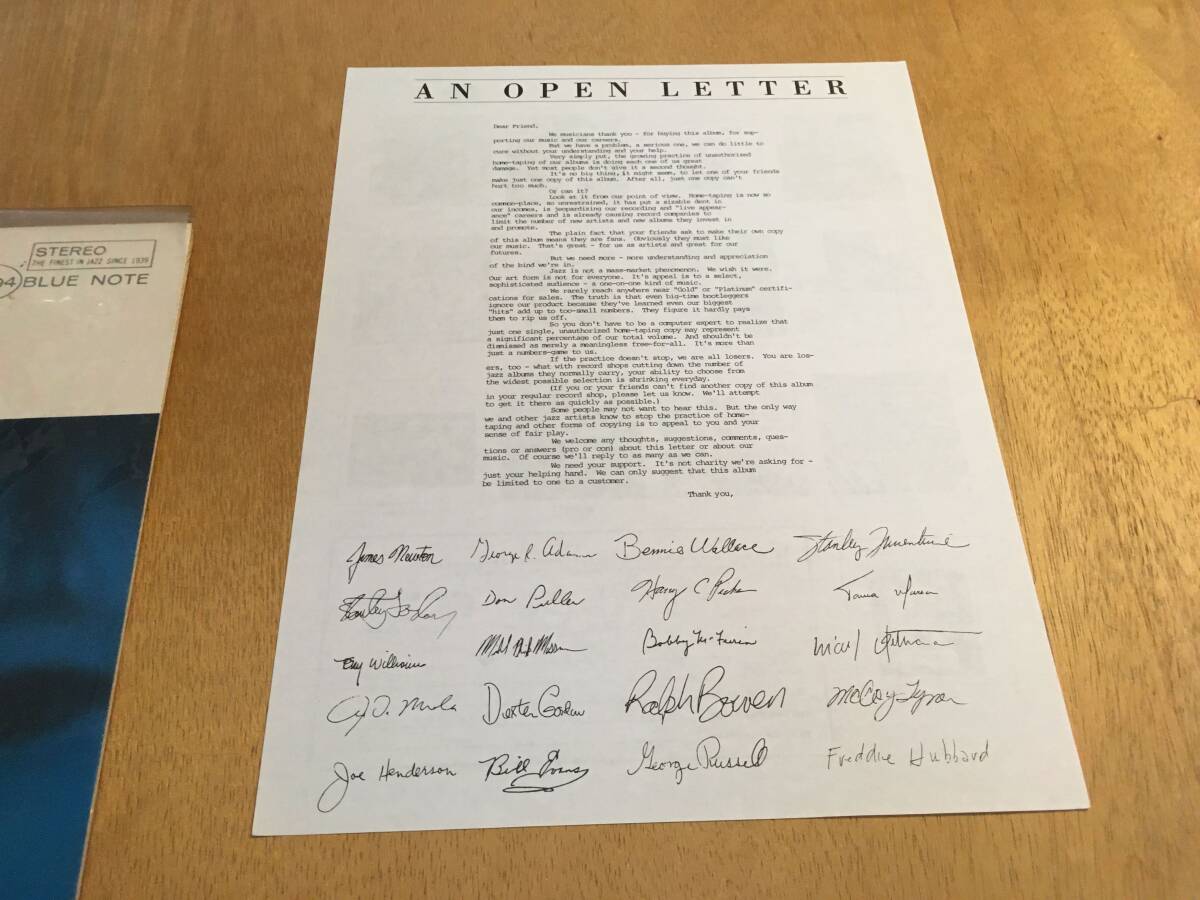 AN OPEN LETTER
Dear Friend,
We musicians thank you - for buying this album, for sup-
porting our music and our careers.
But we have a problem, a serious one, we can do little to
cure without your understanding and your help.
Very simply put, the growing practice of unauthorized
home-taping of our albums is doing each one of us great
damage. Yet most people don't give it a second thought.
It's no big thing, it might seem, to let one of your friends
make just one copy of this album. After all, just one copy can't
hurt too much.
Or can it?
Look at it from our point of view. Home-taping is now so
common-place, so unrestrained, it has put a sizable dent in
our incomes, is jeopardizing our recording and "live appear-
ance" careers and is already causing record companies to
limit the number of new artists and new albums they invest in
and promote.
The plain fact that your friends ask to make their own copy
of this album means they are fans. (Obviously they must like
our music. That's great - for us as artists and great for our
futures.
But we need more - more understanding and appreciation
of the bind we're in.
Jazz is not a mass-market phenomenon. We wish it were.
Our art form is not for everyone. It's appeal is to a select,
sophisticated audience - a one-on-one kind of music.
We rarely reach anywhere near "Gold" or "Platinum" certifi-
cations for sales. The truth is that even big-time bootleggers
ignore our product because they've learned even our biggest
"hits" add up to too-small numbers. They figure it hardly pays
them to rip us off.
So you don't have to be a computer expert to realize that
just one single, unauthorized home-taping copy may represent
a significant percentage of our total volume. And shouldn't be
dismissed as merely a meaningless free-for-all. It's more than
just a numbers-game to us.
If the practice doesn't stop, we are all losers. You are los-
ers, too - what with record shops cutting down the number of
jazz albums they normally carry, your ability to choose from
the widest possible selection is shrinking everyday.
(If you or your friends can't find another copy of this album
in your regular record shop, please let us know. We'll attempt
to get it there as quickly as possible.)
Some people may not want to hear this. But the only way
we and other jazz artists know to stop the practice of home-
taping and other forms of copying is to appeal to you and your
sense of fair play.
We welcome any thoughts, suggestions, comments, ques-
tions or answers (pro or con) about this letter or about our
music. Of course we'll reply to as many as we can.
We need your support. It's not charity we're asking for -
just your helping hand. We can only suggest that this album
be limited to one to a customer.
Thank you,
James Newton George R. Adams Bennie Wallace Stanley Turrentine
Stanley Jordan Don Pullen
Tony Williams Bobby McFerrin
Dexter Gordon Ralph Bowen McCoy Tyner
Joe Henderson Bill Evans George Russell Freddie Hubbard
STEREO
THE FINEST IN JAZZ SINCE 1939
94 BLUE NOTE